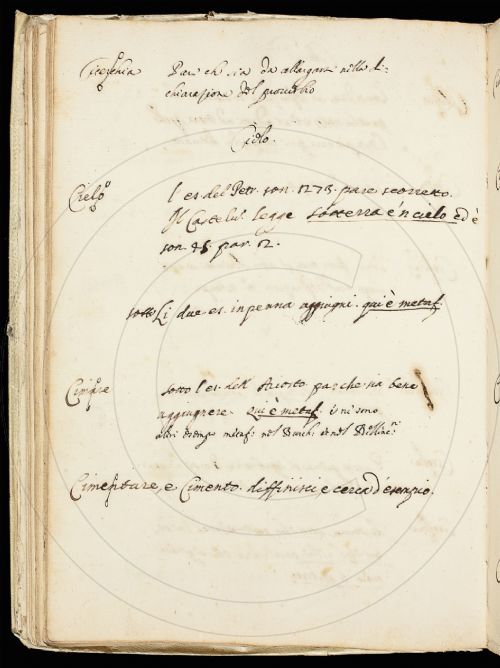 Cicerchia Pare che sia da allargare nella di:
chiarazione del proverbio
Cielo.
Cielo l'es. del Petr. son. 1273. pare scorretto.
Il Castelv. legge sotterra è'n cielo ed è
son. 45. par. 12.
sotto Li due es. in penna aggiugni. qui è metaf.
sotto l'es. dell' Ariosto parche sia bene
aggiugnere. Qui è metaf. e vi sono
altri esempi metaf. nel Burch. e nel Bellinc.ni
Cimentare, e Cimento. diffinisci e cerca d'esempio.